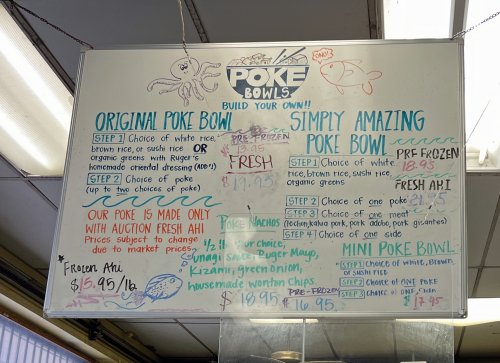 ONO!
POKE
BOWLS
BUILD YOUR OWN!!
ORIGINAL POKE BOWL
STEP 1 Choice of white rice,
brown rice, or sushi rice OR
organic greens with Ruger's
homemade oriental dressing
STEP 2 Choice of poke
(up to two choices of poke)
PRE-FROZEN
FRESH
OUR POKE IS MADE ONLY
WITH AUCTION FRESH AHI
Prices subject to change
due to market prices.
Frozen Ahi
$15.95/lb
SIMPLY AMAZING
POKE BOWL
STEP 1 Choice of white
rice, brown rice, sushi rice,
organic greens
PRE FROZEN
18.95
FRESH AHI
STEP 2 Choice of one poke
STEP 3 Choice of one meat
(lechon, kalua pork, pork adobo, pork gisantes)
STEP 4 Choice of one side
POKE NACHOS
1/2 lb. your choice,
unagi sauce, Ruger Mayo,
Kizami, green onion,
housemade wonton chips
$18.95
PRE-FROZEN
$16.95
MINI POKE BOWL
STEP 1 Choice of white, brown,
or sushi rice
STEP 2 Choice of ONE Poke
STEP 3 Choice of ONE Side
$17.95